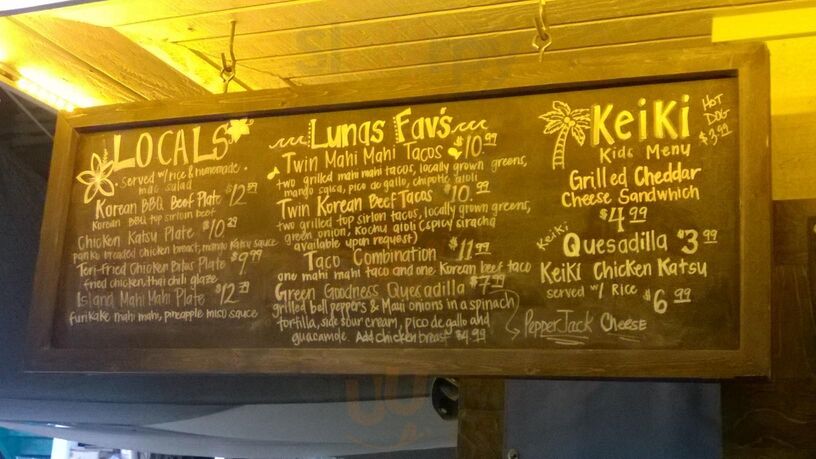 LOCALS
served w/rice & homemade
mac salad
Korean BBQ Beef Plate $12.99
Korean BBQ top sirloin beef
Chicken Katsu Plate $10.29
panko breaded chicken breast, mango katsu sauce
Teri-Fried Chicken Bites Plate $9.99
fried chicken, thai chili glaze
Island Mahi Mahi Plate $12.79
furikake mahi mahi, pineapple miso sauce
Lunas Fav's
Twin Mahi Mahi Tacos $10.99
two grilled mahi mahi tacos, locally grown greens,
mango salsa, pico de gallo, chipotle aioli
Twin Korean Beef Tacos $10.99
two grilled top sirlon tacos, locally grown greens,
green onion, Kochu aioli (spicy siracha
available upon request)
Taco Combination $11.99
one mahi mahi taco and one Korean beef taco
Green Goodness Quesadilla $7.99
grilled bell peppers & Maui onions in a spinach
tortilla, side sour cream, pico de gallo and
guacamole. Add chicken breast $4.99
KeiKi
Kids Menu
HOT
DOG
$3.99
Grilled Cheddar
Cheese Sandwhich
$4.99
Keiki
Quesadilla $3.99
KeiKi Chicken Katsu
served w/ Rice $6.99
PepperJack Cheese